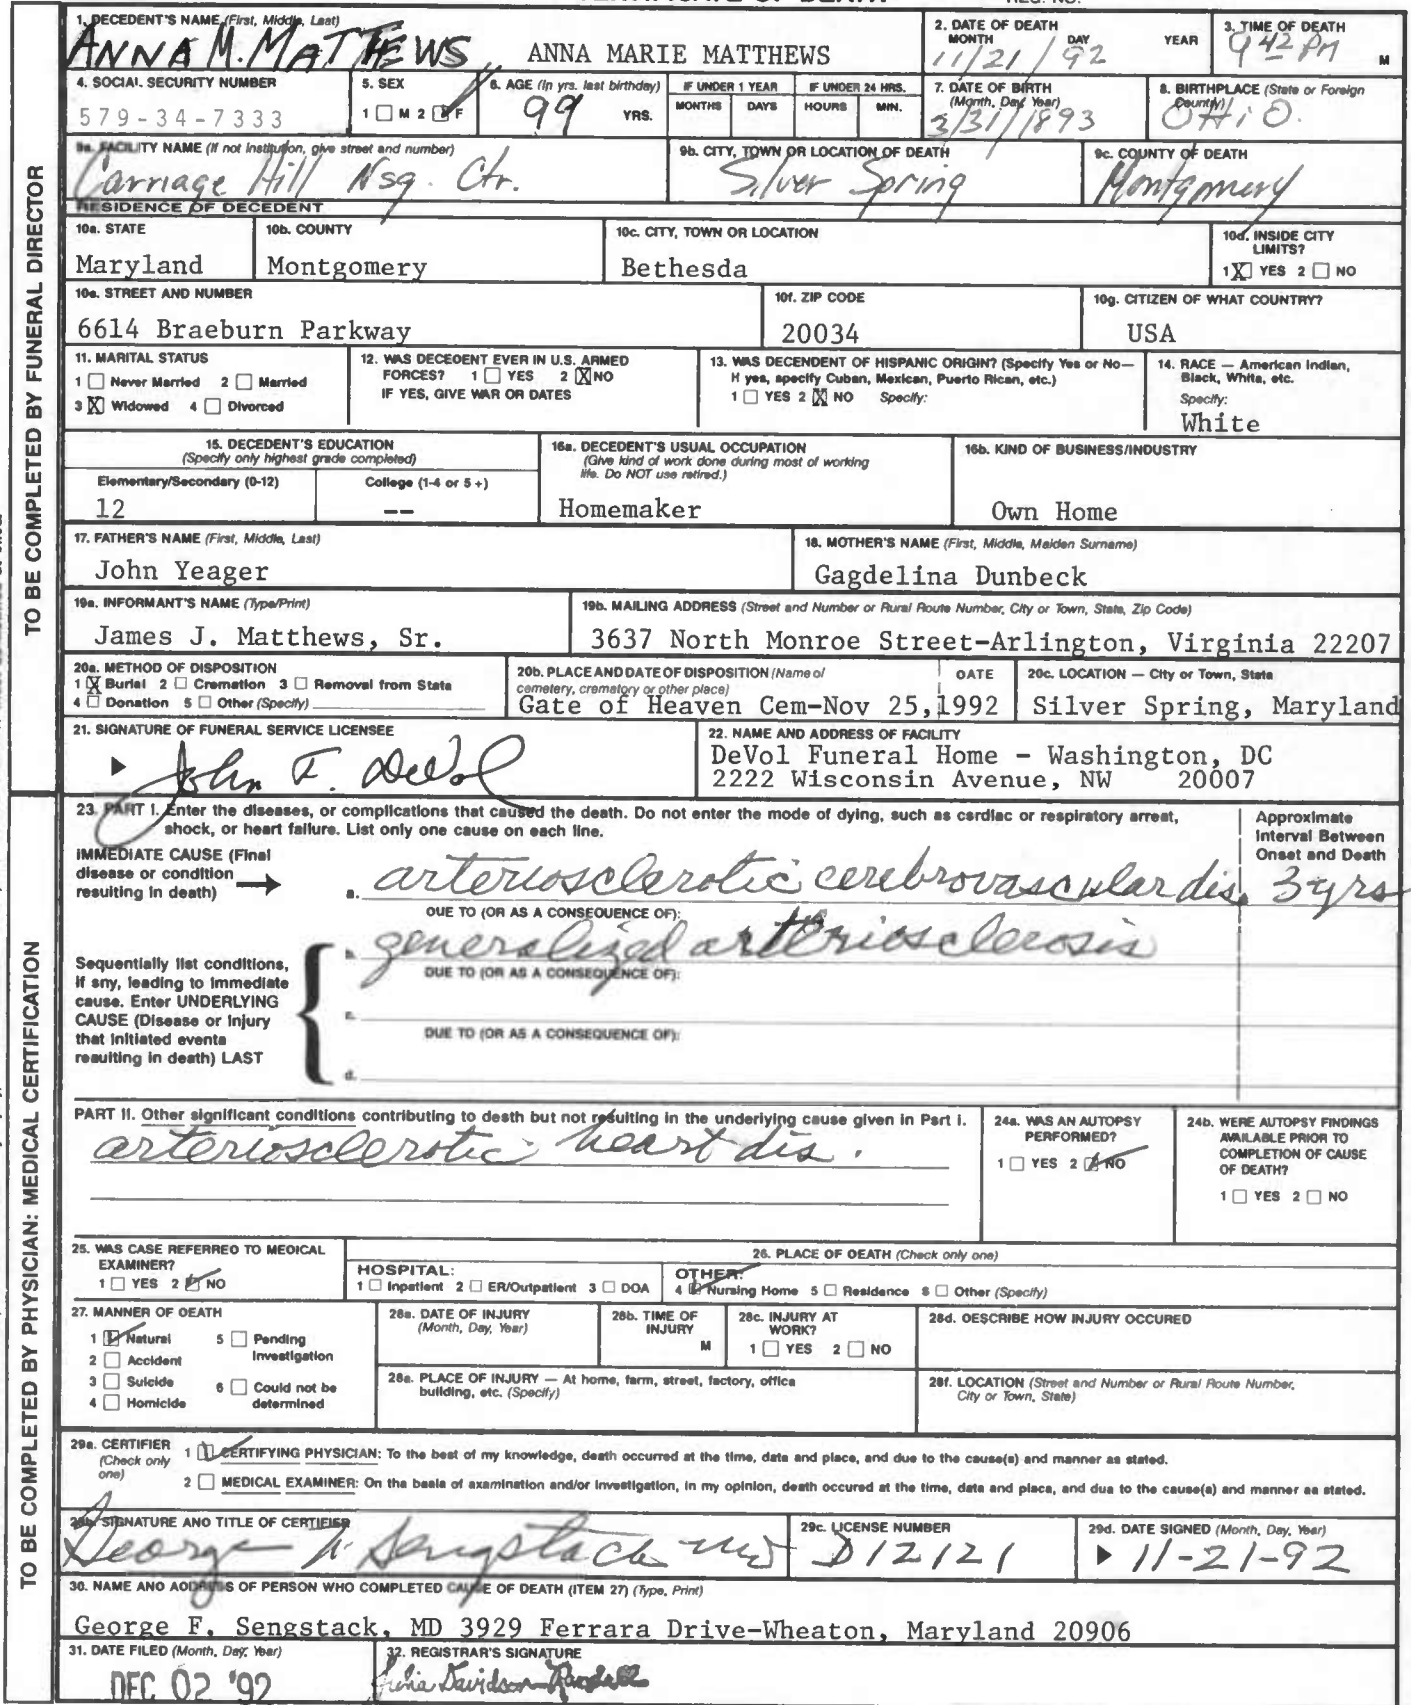 1. DECEDENT'S NAME (First, Middle, Last)
ANNA M. MATTHEWS ANNA MARIE MATTHEWS
2. DATE OF DEATH
MONTH DAY YEAR
11/21/92
3. TIME OF DEATH
9 42 PM M
4. SOCIAL SECURITY NUMBER
579-34-7333
5. SEX
1 M 2 F
6. AGE (In yrs. last birthday)
99 YRS.
IF UNDER 1 YEAR
MONTHS DAYS
IF UNDER 24 HRS.
HOURS MIN.
7. DATE OF BIRTH
(Month, Day, Year)
3/31/1893
8. BIRTHPLACE (State or Foreign
Country)
OHIO.
9a. FACILITY NAME (If not institution, give street and number)
Carriage Hill Nsg. Ctr.
9b. CITY, TOWN OR LOCATION OF DEATH
Silver Spring
9c. COUNTY OF DEATH
Montgomery
RESIDENCE OF DECEDENT
10a. STATE
Maryland
10b. COUNTY
Montgomery
10c. CITY, TOWN OR LOCATION
Bethesda
10d. INSIDE CITY
LIMITS?
1 X YES 2 NO
10e. STREET AND NUMBER
6614 Braeburn Parkway
10f. ZIP CODE
20034
10g. CITIZEN OF WHAT COUNTRY?
USA
11. MARITAL STATUS
1 Never Married 2 Married
3 X Widowed 4 Divorced
12. WAS DECEDENT EVER IN U.S. ARMED
FORCES? 1 YES 2 X NO
IF YES, GIVE WAR OR DATES
13. WAS DECENDENT OF HISPANIC ORIGIN? (Specify Yes or No—
If yes, specify Cuban, Mexican, Puerto Rican, etc.)
1 YES 2 X NO Specify:
14. RACE — American Indian,
Black, White, etc.
Specify:
White
15. DECEDENT'S EDUCATION
(Specify only highest grade completed)
Elementary/Secondary (0-12) College (1-4 or 5+)
12 --
16a. DECEDENT'S USUAL OCCUPATION
(Give kind of work done during most of working
life. Do NOT use retired.)
Homemaker
16b. KIND OF BUSINESS/INDUSTRY
Own Home
17. FATHER'S NAME (First, Middle, Last)
John Yeager
18. MOTHER'S NAME (First, Middle, Maiden Surname)
Gagdelina Dunbeck
19a. INFORMANT'S NAME (Type/Print)
James J. Matthews, Sr.
19b. MAILING ADDRESS (Street and Number or Rural Route Number, City or Town, State, Zip Code)
3637 North Monroe Street-Arlington, Virginia 22207
20a. METHOD OF DISPOSITION
1 X Burial 2 Cremation 3 Removal from State
4 Donation 5 Other (Specify)
20b. PLACE AND DATE OF DISPOSITION (Name of
cemetery, crematory or other place) DATE
Gate of Heaven Cem-Nov 25,1992
20c. LOCATION — City or Town, State
Silver Spring, Maryland
21. SIGNATURE OF FUNERAL SERVICE LICENSEE
John F. DeVol
22. NAME AND ADDRESS OF FACILITY
DeVol Funeral Home - Washington, DC
2222 Wisconsin Avenue, NW 20007
TO BE COMPLETED BY FUNERAL DIRECTOR
23. PART I. Enter the diseases, or complications that caused the death. Do not enter the mode of dying, such as cardiac or respiratory arrest,
shock, or heart failure. List only one cause on each line.
Approximate
Interval Between
Onset and Death
IMMEDIATE CAUSE (Final
disease or condition
resulting in death)
a. arteriosclerotic cerebrovascular dis. 3 yrs
DUE TO (OR AS A CONSEQUENCE OF):
b. generalized arteriosclerosis
DUE TO (OR AS A CONSEQUENCE OF):
Sequentially list conditions,
if any, leading to immediate
cause. Enter UNDERLYING
CAUSE (Disease or injury
that initiated events
resulting in death) LAST
c.
DUE TO (OR AS A CONSEQUENCE OF):
d.
PART II. Other significant conditions contributing to death but not resulting in the underlying cause given in Part I.
arteriosclerotic heart dis.
24a. WAS AN AUTOPSY
PERFORMED?
1 YES 2 NO
24b. WERE AUTOPSY FINDINGS
AVAILABLE PRIOR TO
COMPLETION OF CAUSE
OF DEATH?
1 YES 2 NO
25. WAS CASE REFERRED TO MEDICAL
EXAMINER?
1 YES 2 NO
26. PLACE OF DEATH (Check only one)
HOSPITAL:
1 Inpatient 2 ER/Outpatient 3 DOA
OTHER:
4 Nursing Home 5 Residence 6 Other (Specify)
27. MANNER OF DEATH
1 Natural 5 Pending
Investigation
2 Accident
3 Suicide 6 Could not be
determined
4 Homicide
28a. DATE OF INJURY
(Month, Day, Year)
28b. TIME OF
INJURY
M
28c. INJURY AT
WORK?
1 YES 2 NO
28d. DESCRIBE HOW INJURY OCCURED
28e. PLACE OF INJURY — At home, farm, street, factory, office
building, etc. (Specify)
28f. LOCATION (Street and Number or Rural Route Number,
City or Town, State)
29a. CERTIFIER
(Check only
one)
1 CERTIFYING PHYSICIAN: To the best of my knowledge, death occurred at the time, date and place, and due to the cause(s) and manner as stated.
2 MEDICAL EXAMINER: On the basis of examination and/or investigation, in my opinion, death occured at the time, date and place, and due to the cause(s) and manner as stated.
29b. SIGNATURE AND TITLE OF CERTIFIER
George Sengstack MD
29c. LICENSE NUMBER
D12121
29d. DATE SIGNED (Month, Day, Year)
11-21-92
30. NAME AND ADDRESS OF PERSON WHO COMPLETED CAUSE OF DEATH (ITEM 27) (Type, Print)
George F. Sengstack, MD 3929 Ferrara Drive-Wheaton, Maryland 20906
31. DATE FILED (Month, Day, Year)
DEC 02 '92
32. REGISTRAR'S SIGNATURE
Julia Davidson-Randall
TO BE COMPLETED BY PHYSICIAN: MEDICAL CERTIFICATION